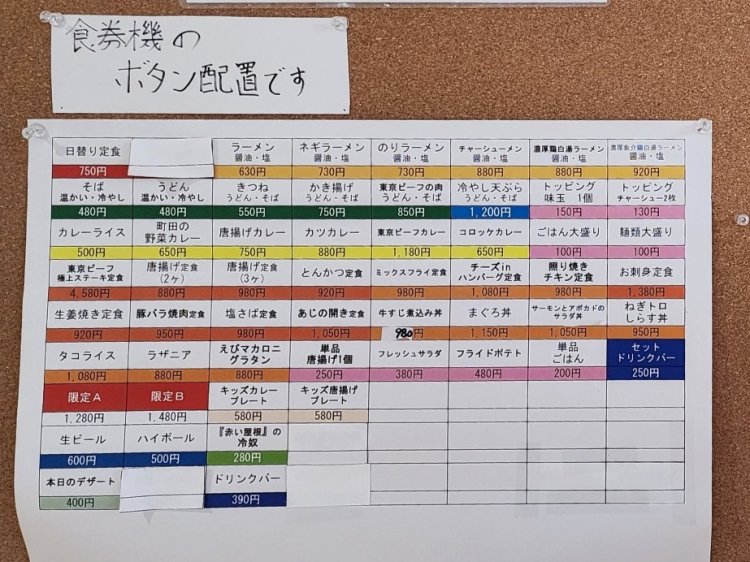 食券機の
ボタン配置です
日替り定食
750円
ラーメン
醤油・塩
630円
ネギラーメン
醤油・塩
730円
のりラーメン
醤油・塩
730円
チャーシューメン
醤油・塩
880円
濃厚鶏白湯ラーメン
醤油・塩
880円
濃厚魚介鶏白湯ラーメン
醤油・塩
920円
そば
温かい・冷やし
480円
うどん
温かい・冷やし
480円
きつね
うどん・そば
550円
かき揚げ
うどん・そば
750円
東京ビーフの肉
うどん・そば
850円
冷やし天ぷら
うどん・そば
1,200円
トッピング
味玉 1個
150円
トッピング
チャーシュー2枚
130円
カレーライス
500円
町田の
野菜カレー
650円
唐揚げカレー
750円
カツカレー
880円
東京ビーフカレー
1,180円
コロッケカレー
650円
ごはん大盛り
100円
麺類大盛り
100円
東京ビーフ
極上ステーキ定食
4,580円
唐揚げ定食
(2ヶ)
880円
唐揚げ定食
(3ヶ)
980円
とんかつ定食
920円
ミックスフライ定食
980円
チーズin
ハンバーグ定食
1,080円
照り焼き
チキン定食
980円
お刺身定食
1,380円
生姜焼き定食
920円
豚バラ焼肉定食
950円
塩さば定食
980円
あじの開き定食
1,050円
牛すじ煮込み丼
980円
まぐろ丼
1,150円
サーモンとアボカドの
サラダ丼
1,050円
ねぎトロ
しらす丼
950円
タコライス
1,080円
ラザニア
880円
えびマカロニ
グラタン
880円
単品
唐揚げ1個
250円
フレッシュサラダ
380円
フライドポテト
480円
単品
ごはん
200円
セット
ドリンクバー
250円
限定A
1,280円
限定B
1,480円
キッズカレー
プレート
580円
キッズ唐揚げ
プレート
580円
生ビール
600円
ハイボール
500円
『赤い屋根』の
冷奴
280円
本日のデザート
400円
ドリンクバー
390円